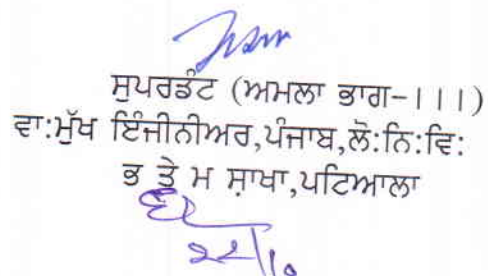 ਸੁਪਰਡੰਟ (ਅਮਲਾ ਭਾਗ-।।।)
ਵਾ:ਮੁੱਖ ਇੰਜੀਨੀਅਰ,ਪੰਜਾਬ,ਲੋ:ਨਿ:ਵਿ:
ਭ ਤੇ ਮ ਸ਼ਾਖਾ,ਪਟਿਆਲਾ